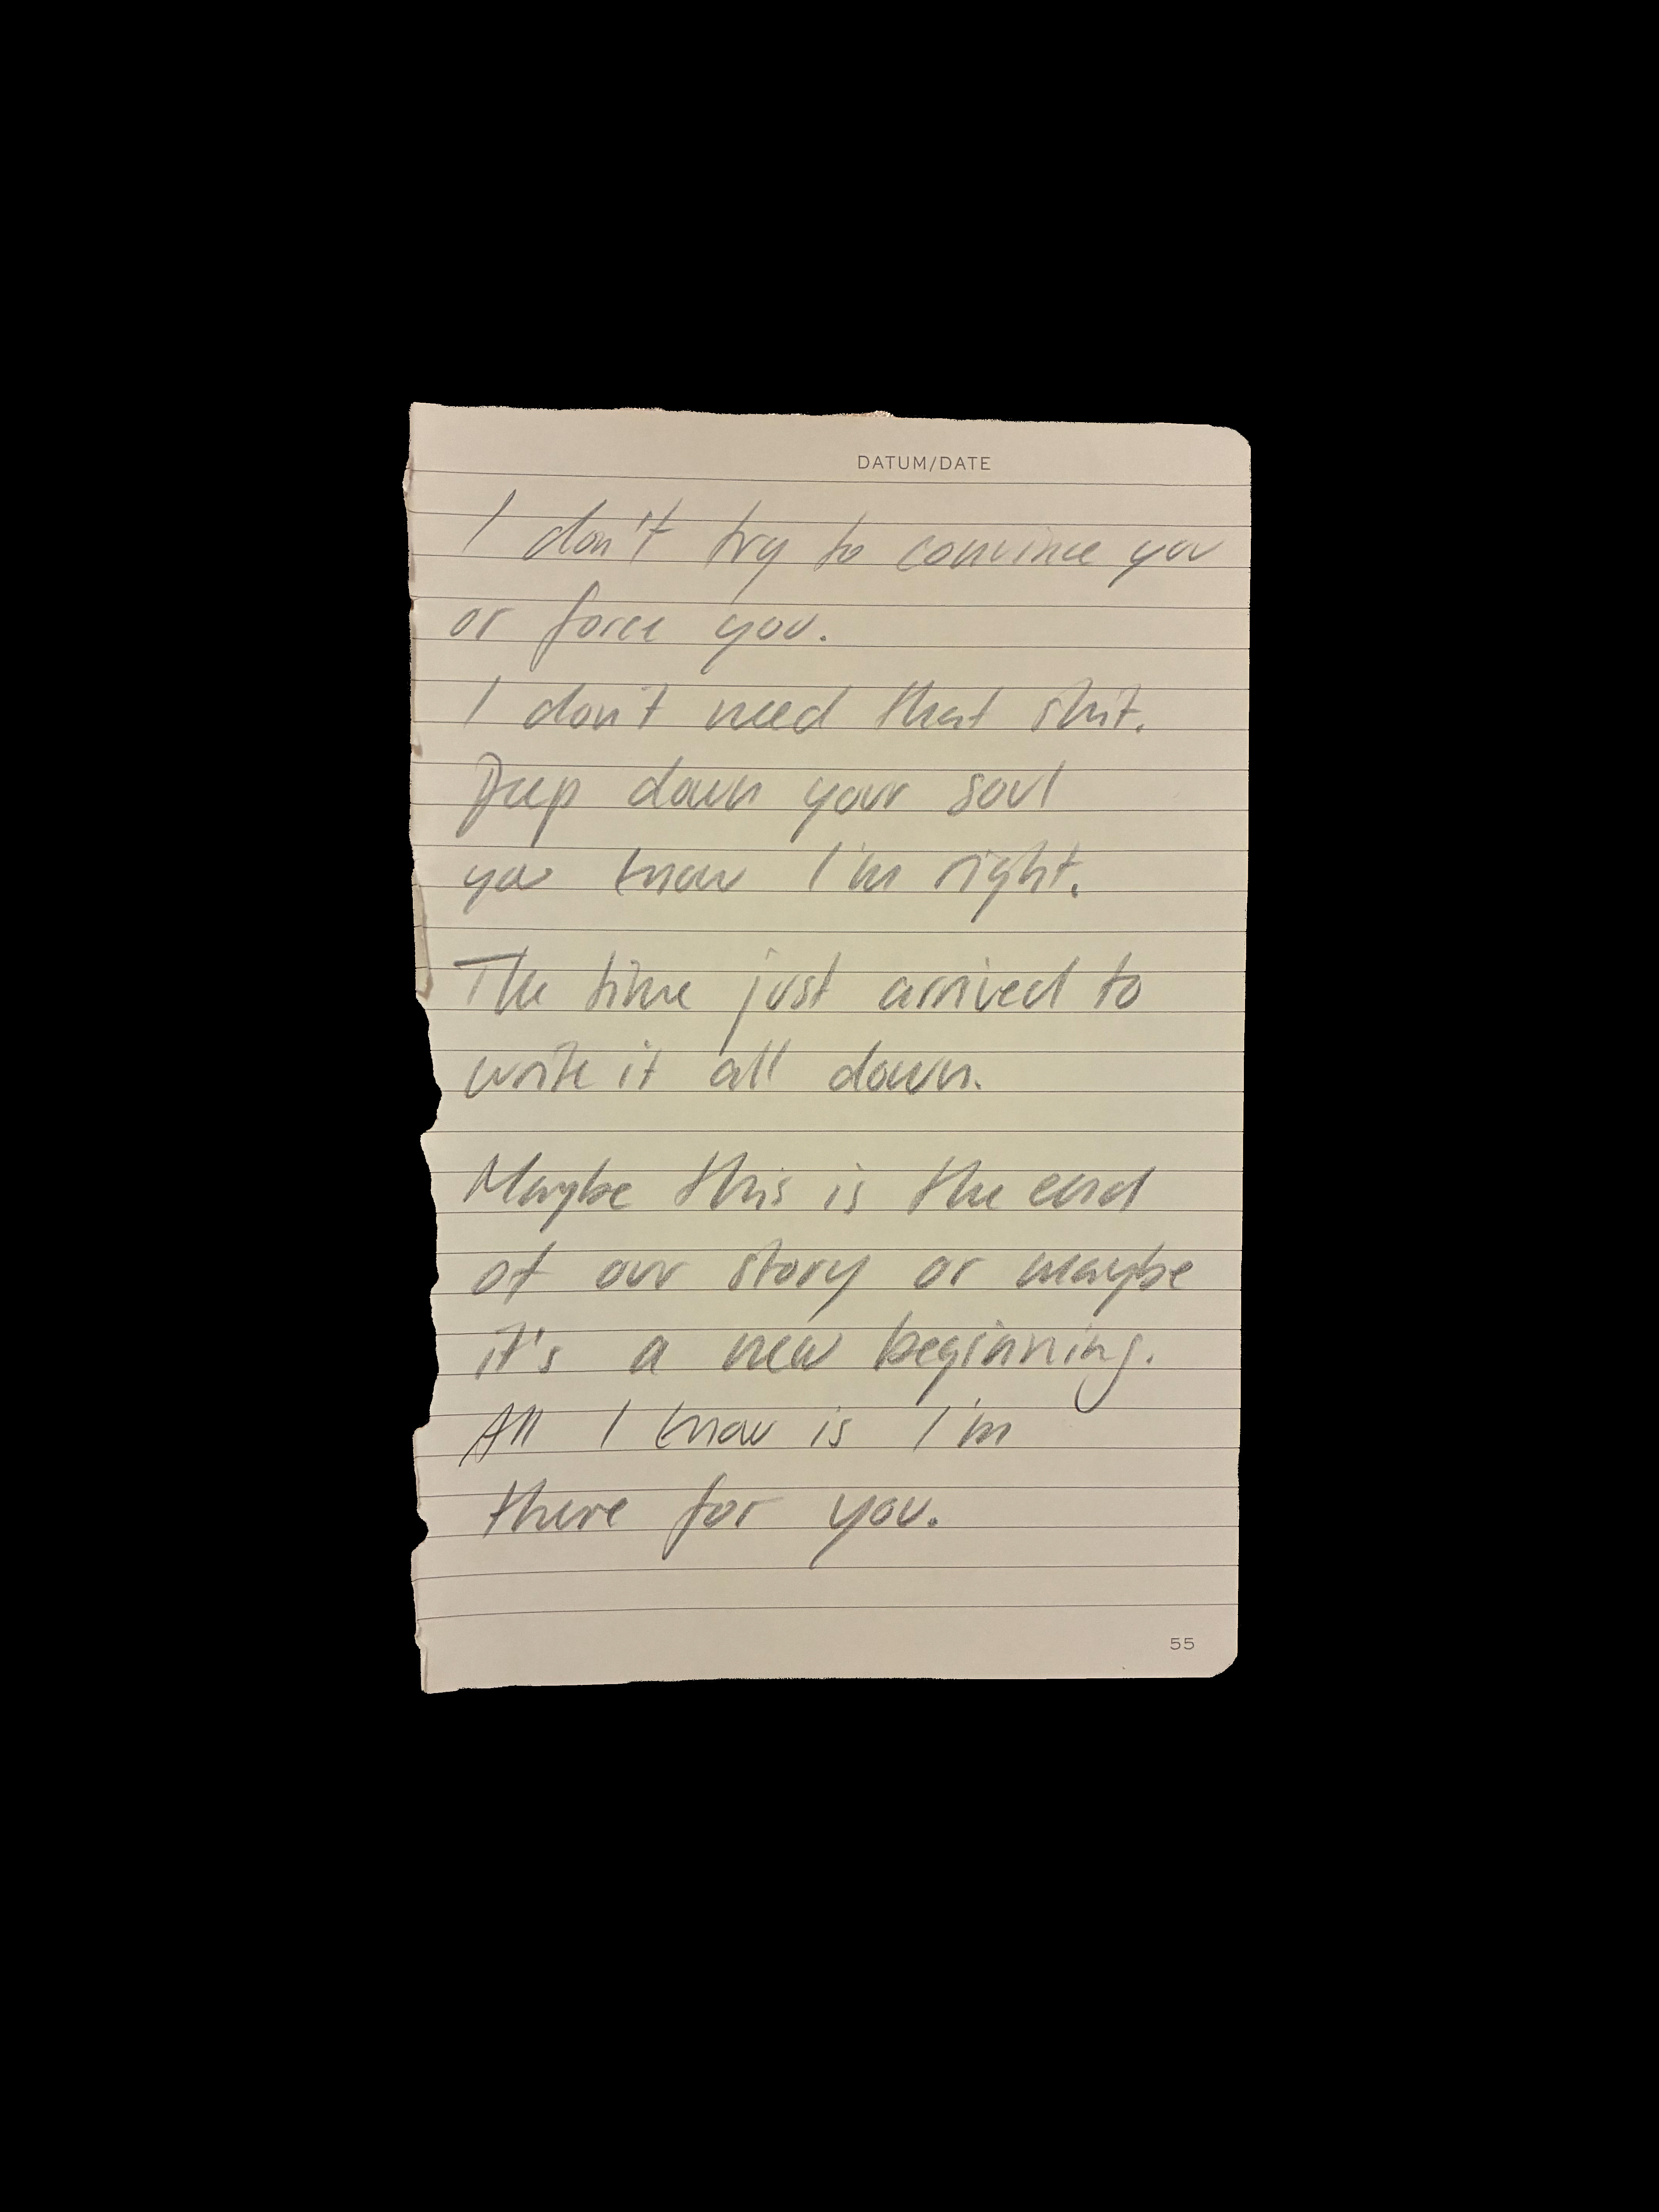 DATUM/DATE
I don't try to convince you
or force you.
I don't need that shit.
Deep down your soul
you know I'm right.
The time just arrived to
write it all down.
Maybe this is the end
of our story or maybe
it's a new beginning.
All I know is I'm
there for you.
55